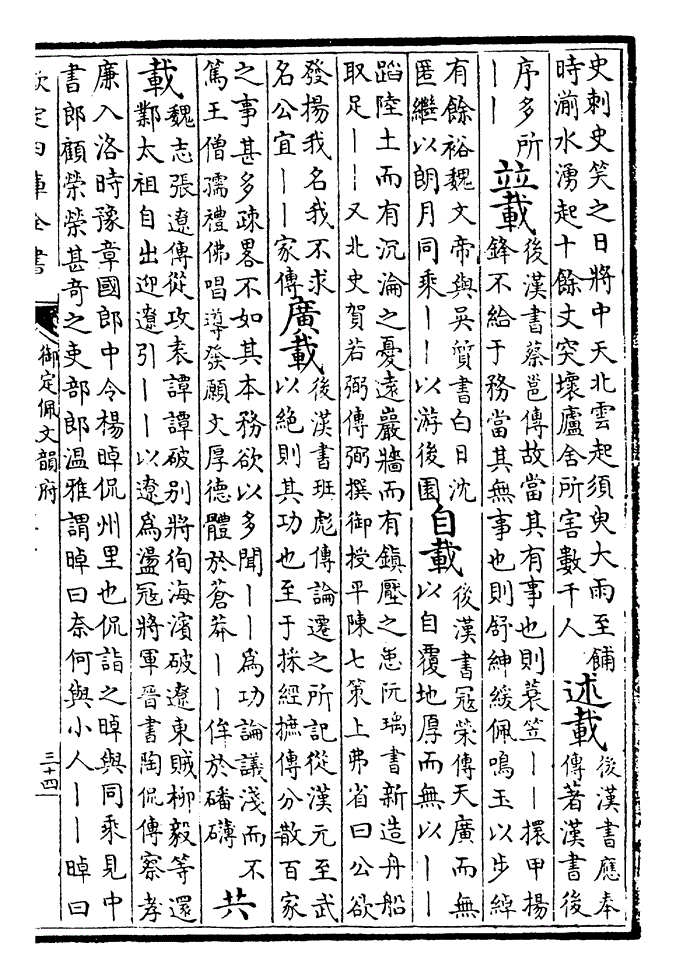 史刺史笑之日將中天北雲起須臾大雨至餔
時湔水湧起十餘丈突壞廬舍所害數千人
述載
後漢書應奉
傳著漢書後
序多所
——
竝載
後漢書蔡邕傳故當其有事也則蓑笠——擐甲揚
鋒不給于務當其無事也則舒紳緩佩鳴玉以步綽
有餘裕魏文帝與吳質書白日沈
匿繼以朗月同乘——以游後園
自載
後漢書冦榮傳天廣而無
以自覆地厚而無以——
蹈陸土而有沉淪之憂遠巖牆而有鎮壓之患阮瑀書新造舟船
取足——又北史賀若弼傳弼撰御授平陳七策上弗省曰公欲
發揚我名我不求
名公宜——家傳
廣載
後漢書班彪傳論遷之所記從漢元至武
以絶則其功也至于採經摭傳分散百家
之事甚多疎畧不如其本務欲以多聞——爲功論議淺而不
篤王僧孺禮佛唱導發願文厚德體於蒼莽——侔於磻礴
共
載
魏志張遼傳從攻袁譚譚破别將徇海濱破遼東賊柳毅等還
鄴太祖自出迎遼引——以遼爲盪冦將軍晉書陶侃傳察孝
廉入洛時豫章國郎中令楊晫侃州里也侃詣之晫與同乘見中
書郎顧榮榮甚奇之吏部郎温雅謂晫曰奈何與小人——晫曰
欽定四庫全書
御定佩文韻府
三十四